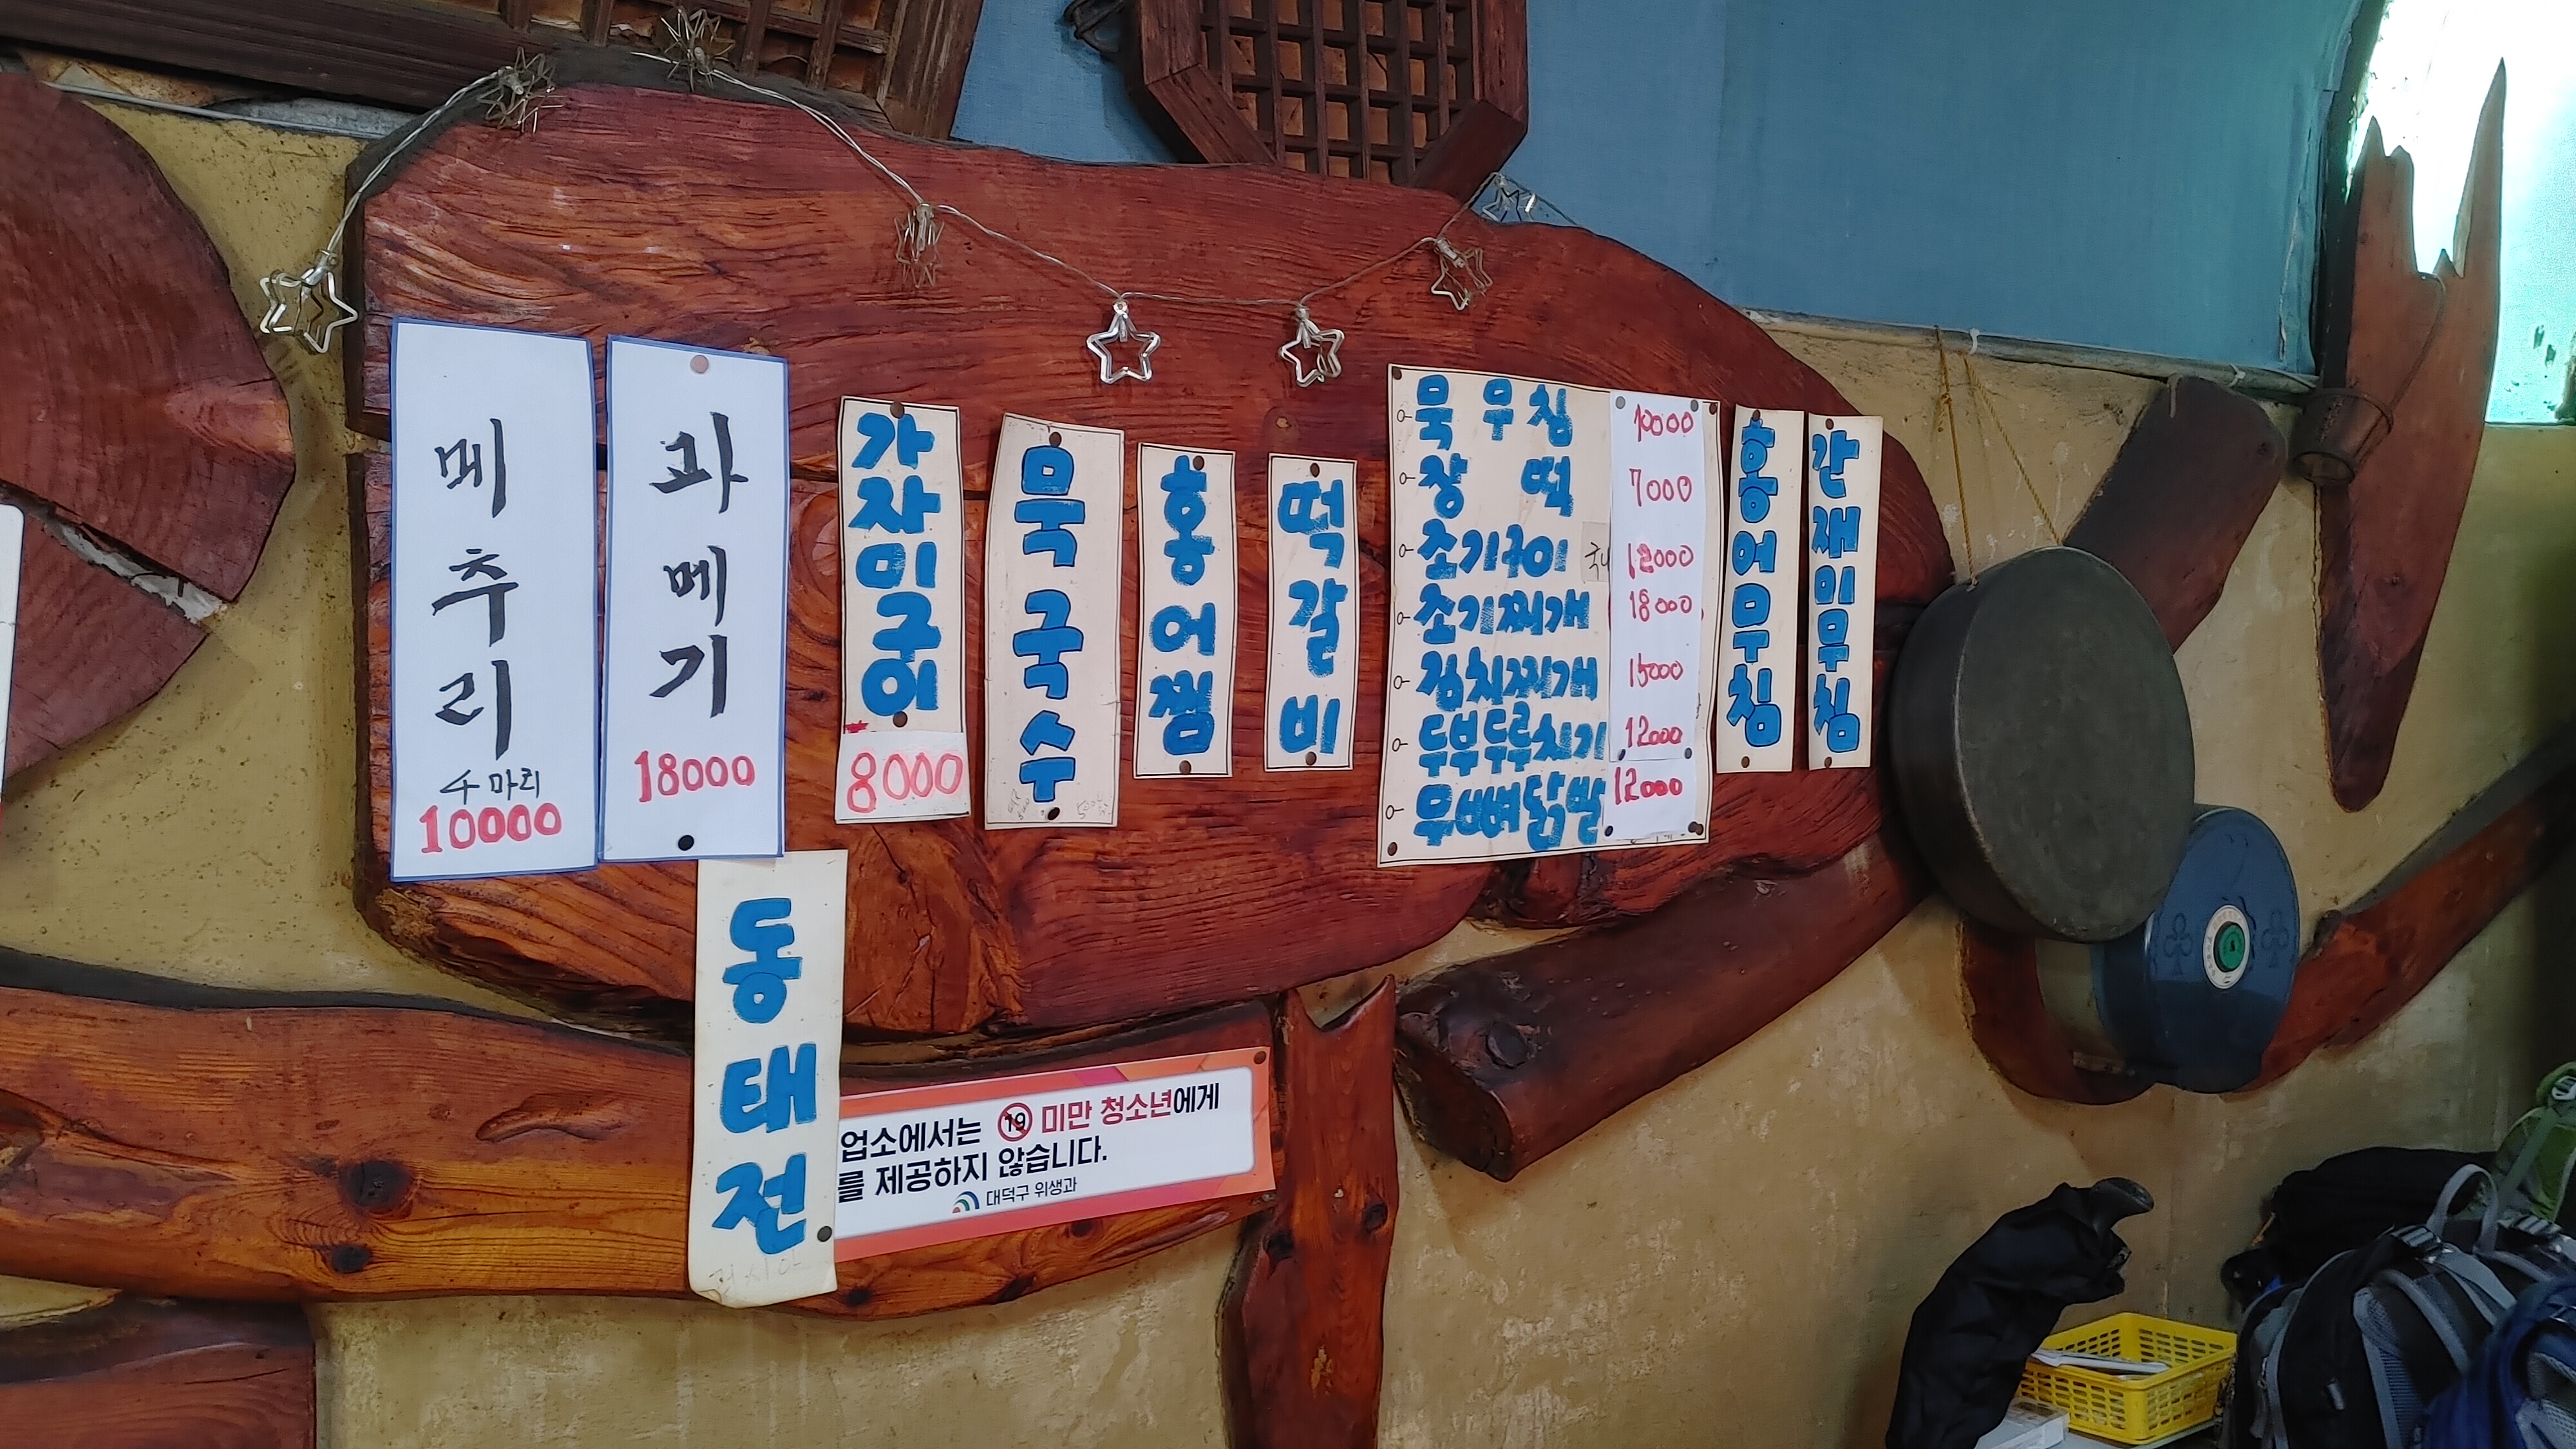 메추리
4마리
10000
과메기
18000
가자미구이
8000
묵국수
홍어찜
떡갈비
묵무침 10000
장떡 7000
조기구이 12000
조기찌개 18000
김치찌개 15000
두부두루치기 12000
무뼈닭발 12000
홍어무침
간재미무침
동태전
업소에서는 19 미만 청소년에게
를 제공하지 않습니다.
대덕구 위생과